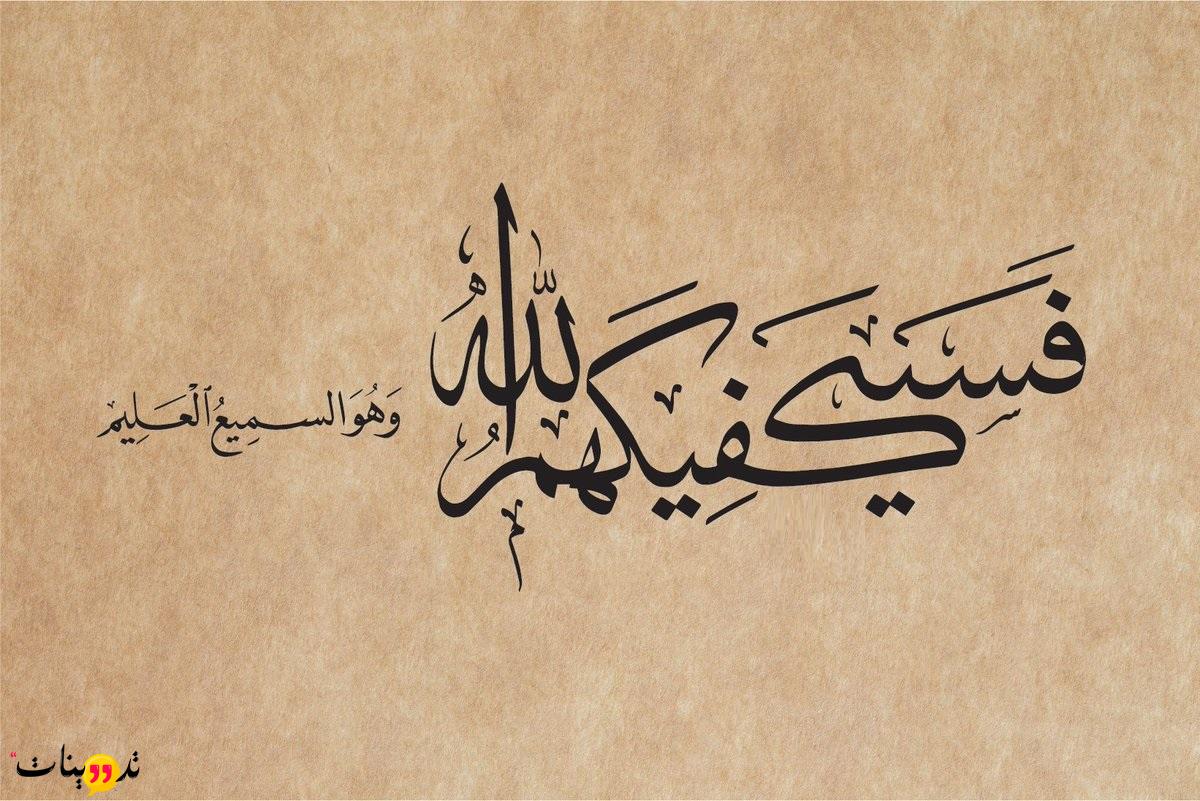 فَسَيَكْفِيكَهُمُ اللَّهُ
وَهُوَ السمِيعُ ٱلْعَلِيم
تدوينات